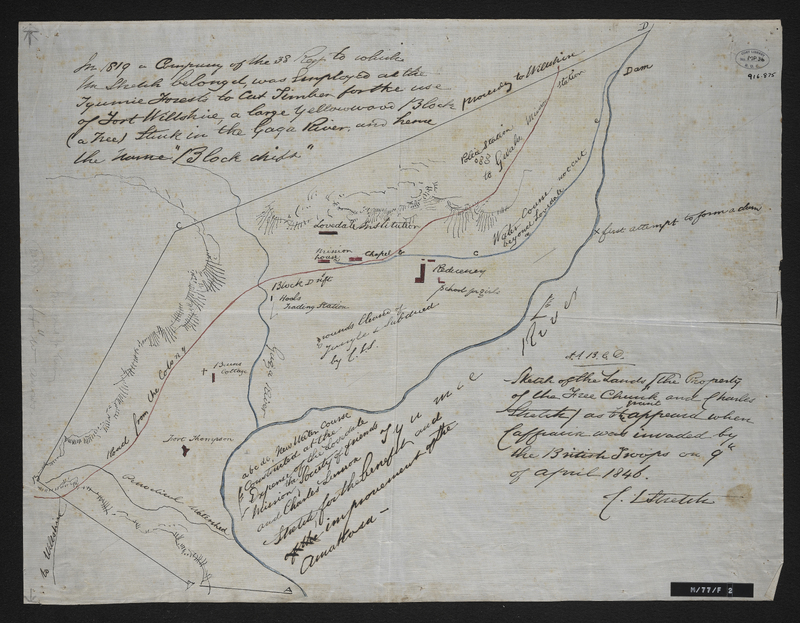 In 1819 a Company of the 38 Regt to which
Mr Stretch belonged, was employed at the
Tyumie Forests to Cut Timber for the use
of Fort Wiltshire, a large Yellowwood Block
(a Tree) Stuck in the Gaga River, and hence
the name "Block drift"
proceeding to Wiltshire
D
Dam
916.875
station
Police Station
to Gwali
Lovedale Institution
Mission
house
Chapel &
C
C
C
Water Course not cut
beyond Lovedale
x first attempt to form a dam
Block Drift
Hoole
Trading Station
Residency
School for girls
grounds Cleared of
Jungle & Subdued
by C. L. S.
Gaga River
Road from the Colony
Burns
Cottage
Fort Thompson
Tyumie
River
A B. & C.
Sketch of the Lands (the Property
of the Free Church and Charles
Stretch) as it appeared when
Caffraria was invaded by
the British Troops on 9th
of April 1846.
C. L Stretch
a b c d e, New Water Course
Constructed at the
Expense of the Lovedale
Mission, the Society of friends
and Charles Lennox
Stretch for the benefit and
improvement of the
Amakosa —
to Wiltshire
A
M/77/F 2